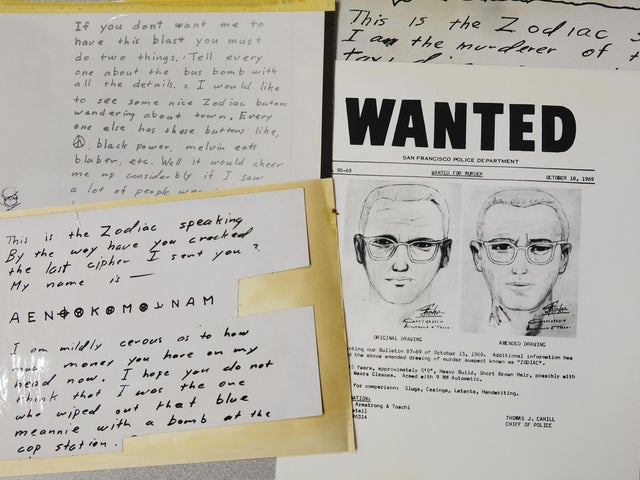 If you dont want me to
have this blast you must
do two things. Tell every
one about the bus bomb with
all the details. 2 I would like
to see some nice Zodiac butons
wandering about town. Every
one else has these buttons like,
black power, melvin eats
bluber, etc. Well it would cheer
me up considerably if I saw
a lot of people
This is the Zodiac speaking
By the way have you cracked
the last cipher I sent you?
My name is —
A E N ⌖ ⊛ K ⊛ M ⊛ ⅃ N A M
I am mildly cerous as to how
much money you have on my
head now. I hope you do not
think that I was the one
who wiped out that blue
meannie with a bomb at the
cop station.
This is the Zodiac
I am the murderer of
WANTED
SAN FRANCISCO POLICE DEPARTMENT
90-69 WANTED FOR MURDER OCTOBER 18, 1969
ORIGINAL DRAWING AMENDED DRAWING
our Bulletin 87-69 of October 13, 1969. Additional information has
the above amended drawing of murder suspect known as "ZODIAC".
Years, approximately 5'8", Heavy Build, Short Brown Hair, possibly with
Wears Glasses. Armed with 9 MM Automatic.
for comparison: Slugs, Casings, Latents, Handwriting.
Armstrong & Toschi
THOMAS J. CAHILL
CHIEF OF POLICE